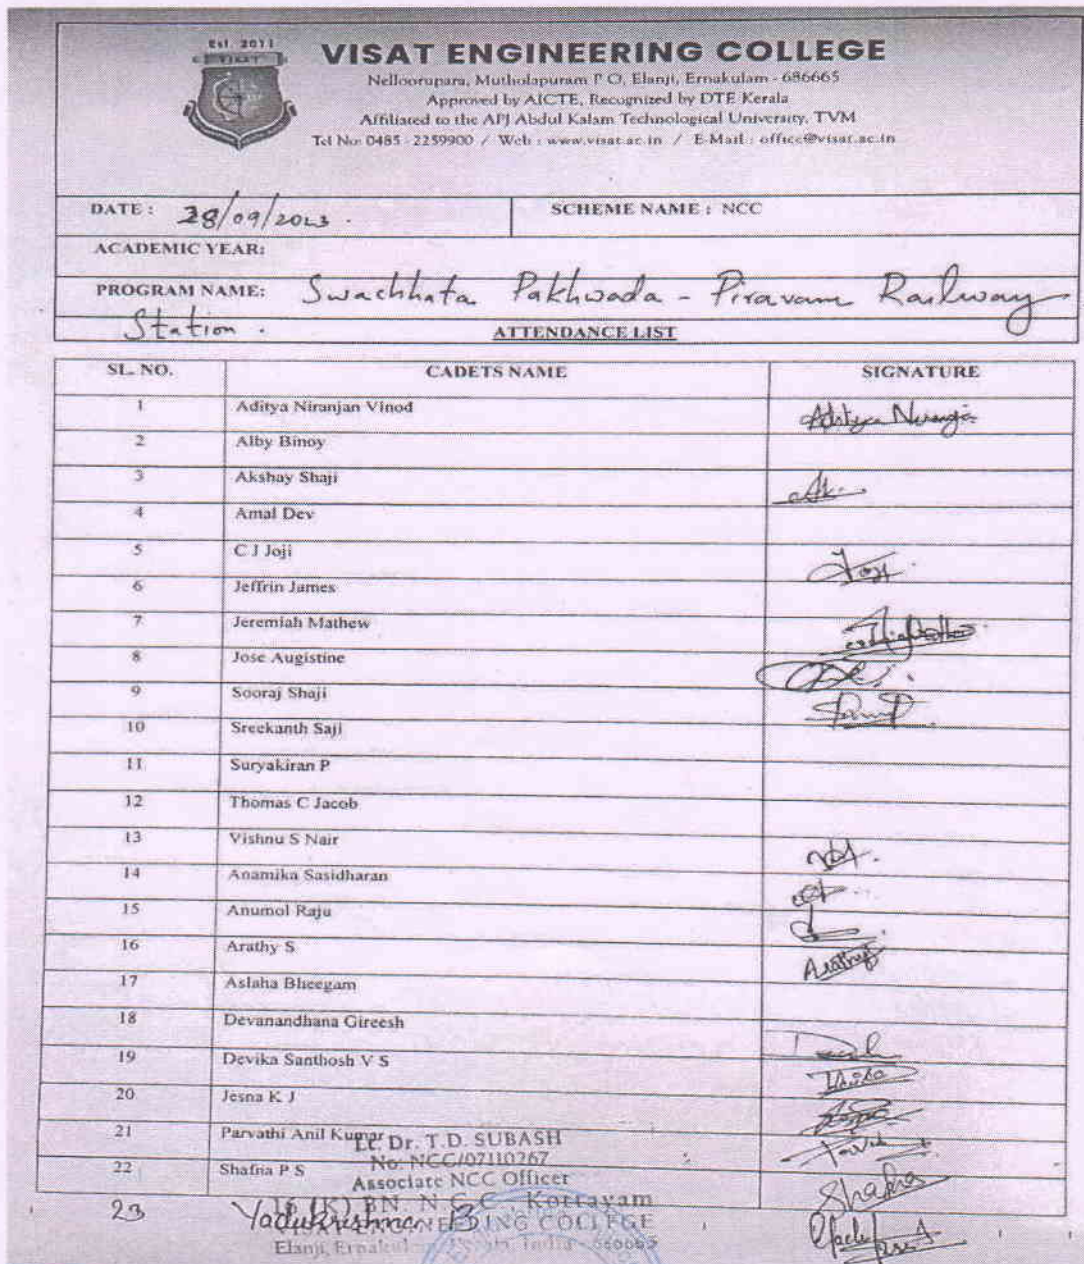 Est. 2011
VISAT
VISAT ENGINEERING COLLEGE
Nelloorupara, Mutholapuram P O, Elanji, Ernakulam - 686665
Approved by AICTE, Recognized by DTE Kerala
Affiliated to the APJ Abdul Kalam Technological University, TVM
Tel No: 0485 - 2259900 / Web : www.visat.ac.in / E-Mail : office@visat.ac.in
DATE : 28/09/2023. SCHEME NAME : NCC
ACADEMIC YEAR:
PROGRAM NAME: Swachhata Pakhwada - Piravam Railway
Station .
ATTENDANCE LIST
SL. NO. CADETS NAME SIGNATURE
1 Aditya Niranjan Vinod
2 Alby Binoy
3 Akshay Shaji
4 Amal Dev
5 C J Joji
6 Jeffrin James
7 Jeremiah Mathew
8 Jose Augistine
9 Sooraj Shaji
10 Sreekanth Saji
11 Suryakiran P
12 Thomas C Jacob
13 Vishnu S Nair
14 Anamika Sasidharan
15 Anumol Raju
16 Arathy S Arathy
17 Aslaha Bheegam
18 Devanandhana Gireesh
19 Devika Santhosh V S
20 Jesna K J
21 Parvathi Anil Kumar
Lt. Dr. T.D. SUBASH
No: NCC/07110267
22 Shafna P S Shafna
Associate NCC Officer
16 (K) BN. N C C Kottayam
23 Yadukrishnan
COLLEGE
Elanji, Ernakulam, Kerala, India - 686665